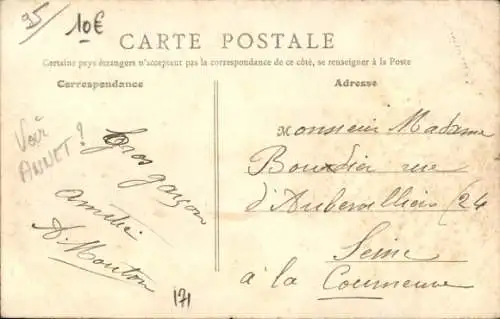 95
10€
CARTE POSTALE
Certains pays étrangers n'acceptent pas la correspondance de ce côté, se renseigner à la Poste
Correspondance
Adresse
Voir
ANNET?
Gros garçon
Amitié
A. Mouton
171
Monsieur Madame
Bourdier rue
d'Aubervilliers (24
Seine
à la Courneuve